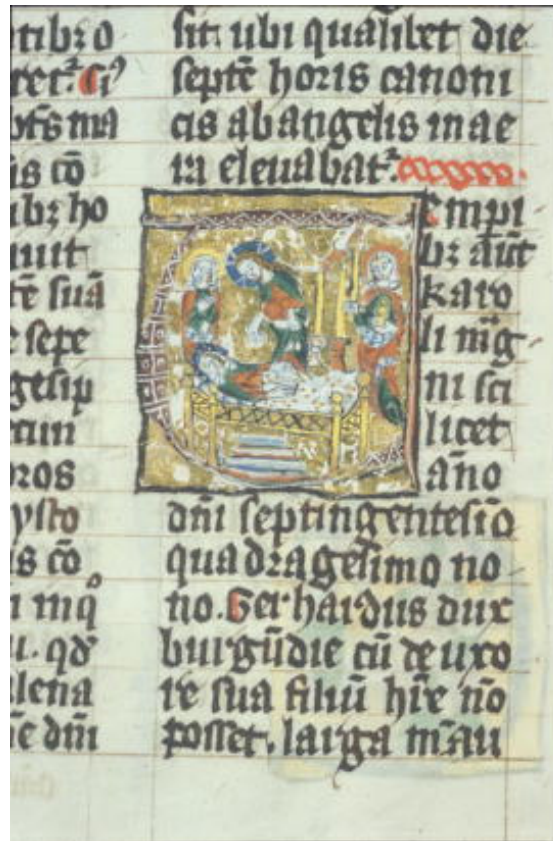 tibꝫ o
ret
ma
is cō
ibꝫ ho
tē suā
e sepe
gesip
ysto
s cō
u. qđ
lena
ē dn̄i
sit ubi qualibet die
septē horis canoni
cis ab angelis in ae
ra eleuabat᷑.
Tempꝛi
bꝫ aūt
karo
li mg̅
ni sci
licet
āno
dn̄i septingentesīo
quadꝛagesimo no
no. Gerhardus dux
burgūdie cū de uxo
re sua filiū hr̄e nō
posset. larga m̄au